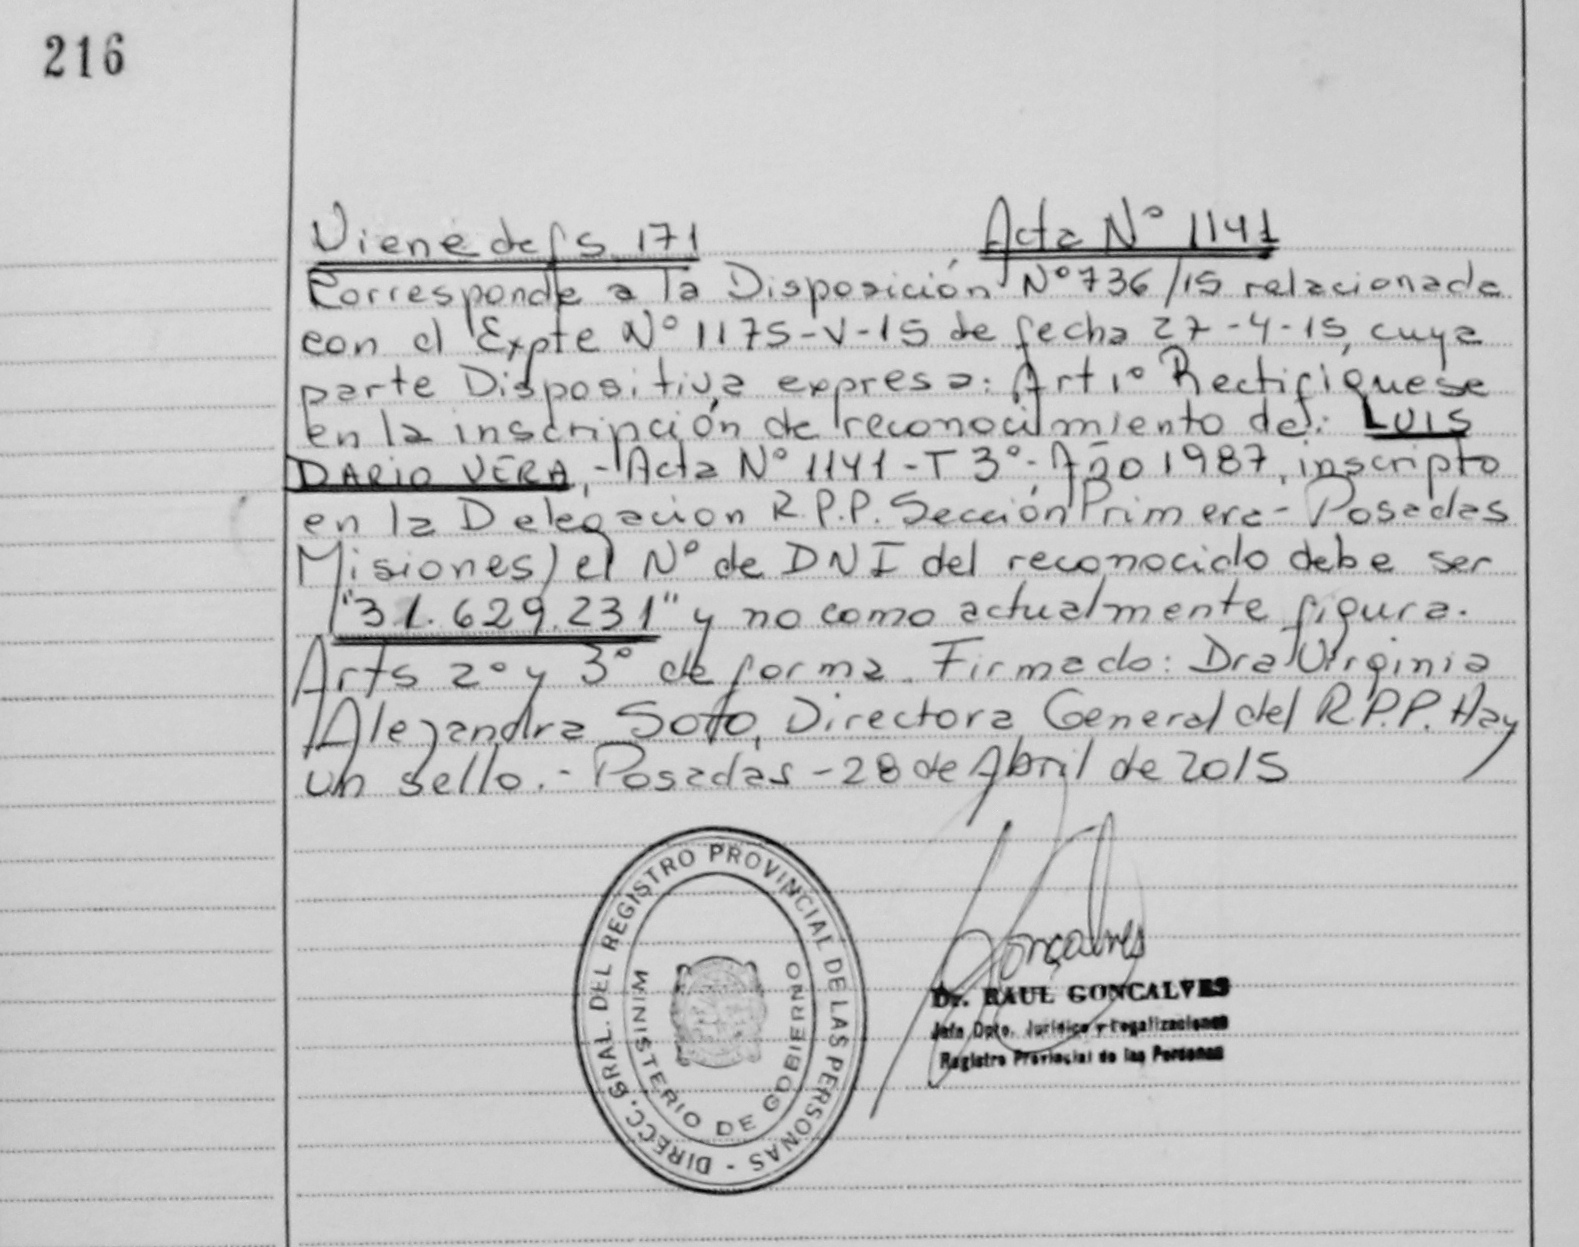 216
Viene de fs. 171 Acta Nº 1141
Corresponde a la Disposición Nº 736/15 relacionada
con el Expte Nº 1175-V-15 de fecha 27-4-15, cuya
parte Dispositiva expresa: Art 1º Rectifíquese
en la inscripción de reconocimiento de: LUIS
DARIO VERA, - Acta Nº 1141 - T 3º - Año 1987, inscripto
en la Delegación R.P.P. Sección Primera - Posadas
Misiones) el Nº de DNI del reconocido debe ser
"31.629.231" y no como actualmente figura.
Arts 2º y 3º de forma. Firmado: Dra Virginia
Alejandra Soto, Directora General del R.P.P. Hay
un sello. - Posadas - 28 de Abril de 2015
DIRECC. GRAL. DEL REGISTRO PROVINCIAL DE LAS PERSONAS -
MINISTERIO DE GOBIERNO
Gonçalves
Dr. RAUL GONCALVES
Jefe Dpto. Jurídico y Legalizaciones
Registro Provincial de las Personas